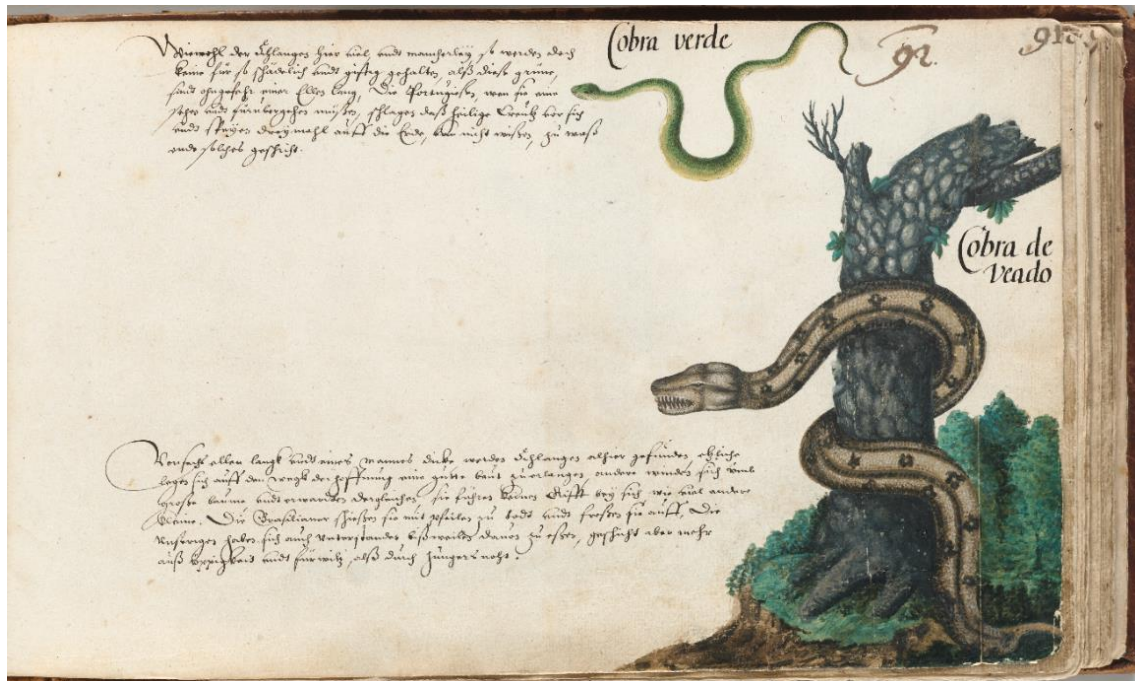 Cobra verde
92.
Wiewohl der Schlangen hier viel undt mancherley, so werden doch
keine für so schädtlich undt gifftig gehalten, alß diese grüne,
sindt ohngefehr einer Ellen lang, Die Portugiesen, wen sie eine
sehen undt fürübergehen müßen, schlagen daß heilige Creütz vor sich
undt speyen dreymahl auff die Erde, kan nicht wißen, zu waß
ende solches geschicht.
Cobra de
Veado
allen langk undt eines Mannes dicke werden Schlangen alhier gefunden, etliche
legen sich auff den wegk der hoffnung eine gutte beut zu erlangen, andere winden sich umb
große baume undt erwarten dergleichen, sie führen keinen Gifft bey sich wie viel andere
kleine. Die Brasilianer schießen sie mit Pfeilen zu todt undt freßen sie auff, Die
Unserigen haben sich auch unterstanden bißweilen davon zu eßen, geschicht aber mehr
auß üppigkeit undt fürwitz, alß durch hungers noht.